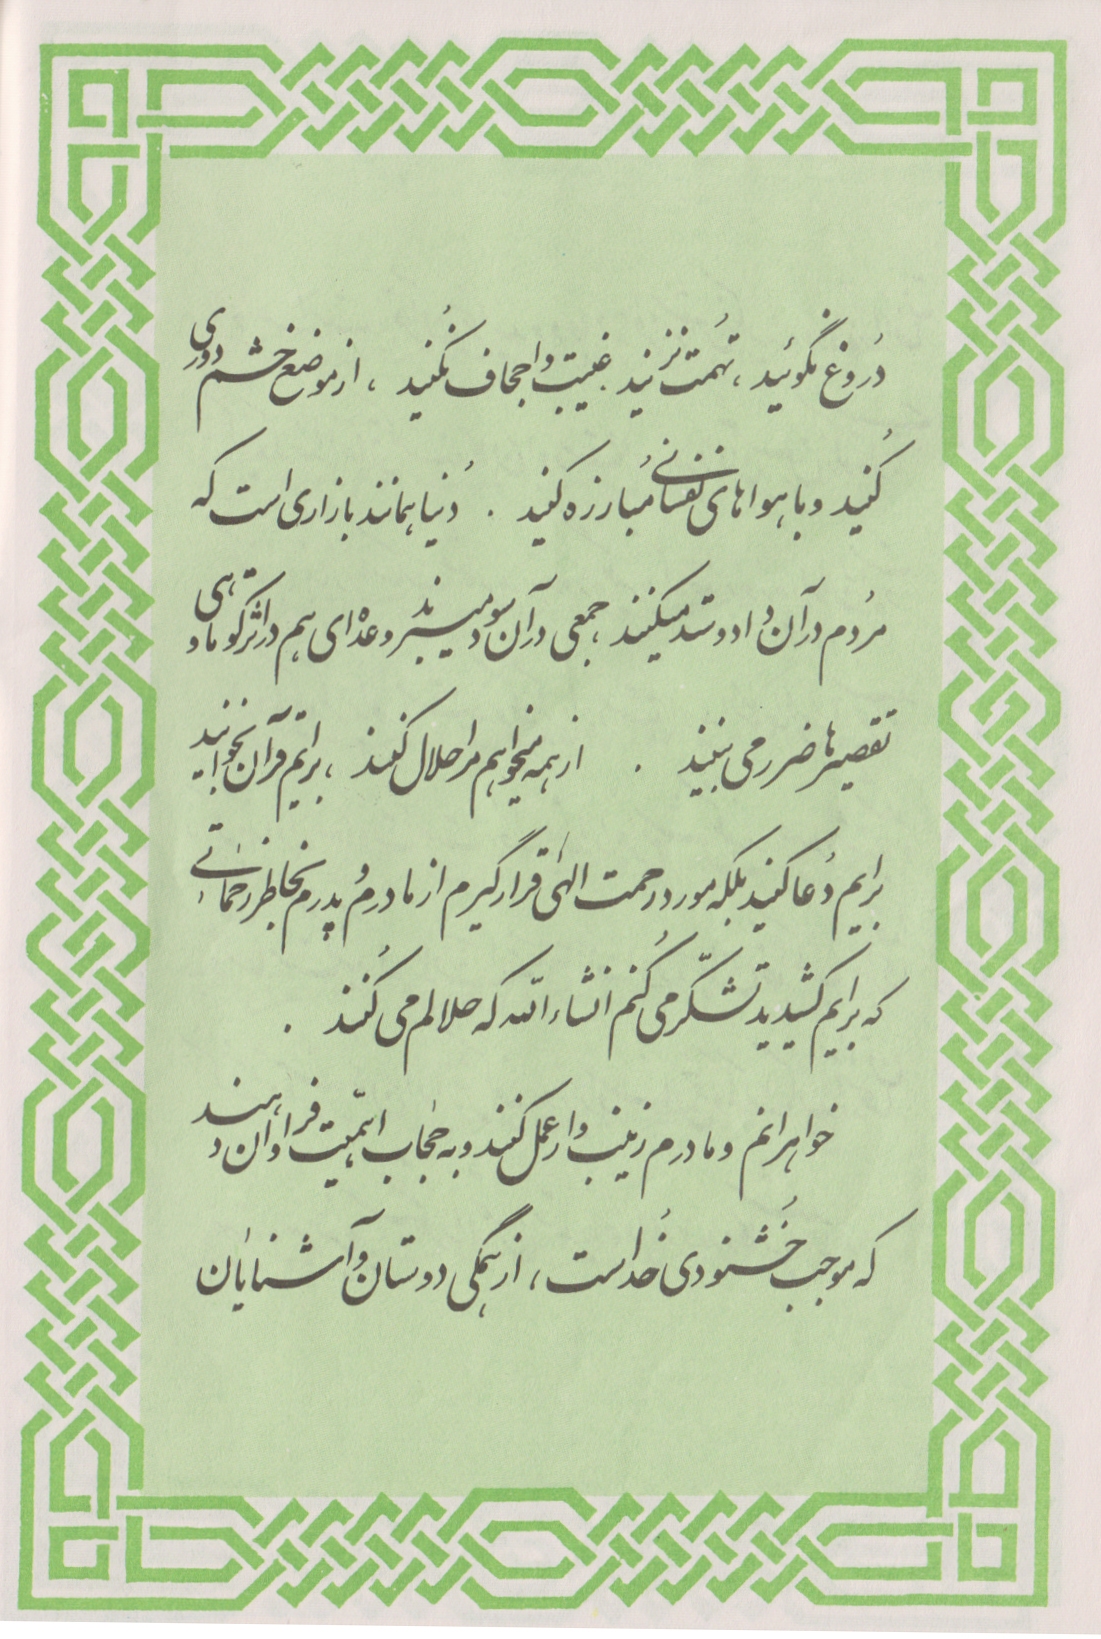 دُروغ نگوئید ، تهُمت نزنید غیبت و اجحاف نکُنید ، از موضع خشم دوری
کُنید و با هواهای نفسانی مُبارزه کنید . دُنیا همانند بازاری است که
مرُدم در آن دادوستد میکنند ، جمعی در آن سود میبرند و عدّه‌ای هم در اثر کوتاهی و
تقصیرها ضرر می بینند . از همه میخواهم مرا حلال کنند ، برایم قرآن بخوانند
برایم دُعا کنید بلکه مورد رحمت الهی قرار گیرم از مادرم و پدرم بخاطر زحماتی
که برایم کشیدید تشکّر می کُنم انشاءالله که حلالم می کُنند .
خواهرانم و مادرم زینب وار عمل کنند و به حجاب اهمّیت فراوان دهند
که موجب خُشنودی خُداست ، از همگی دوستان و آشنایان